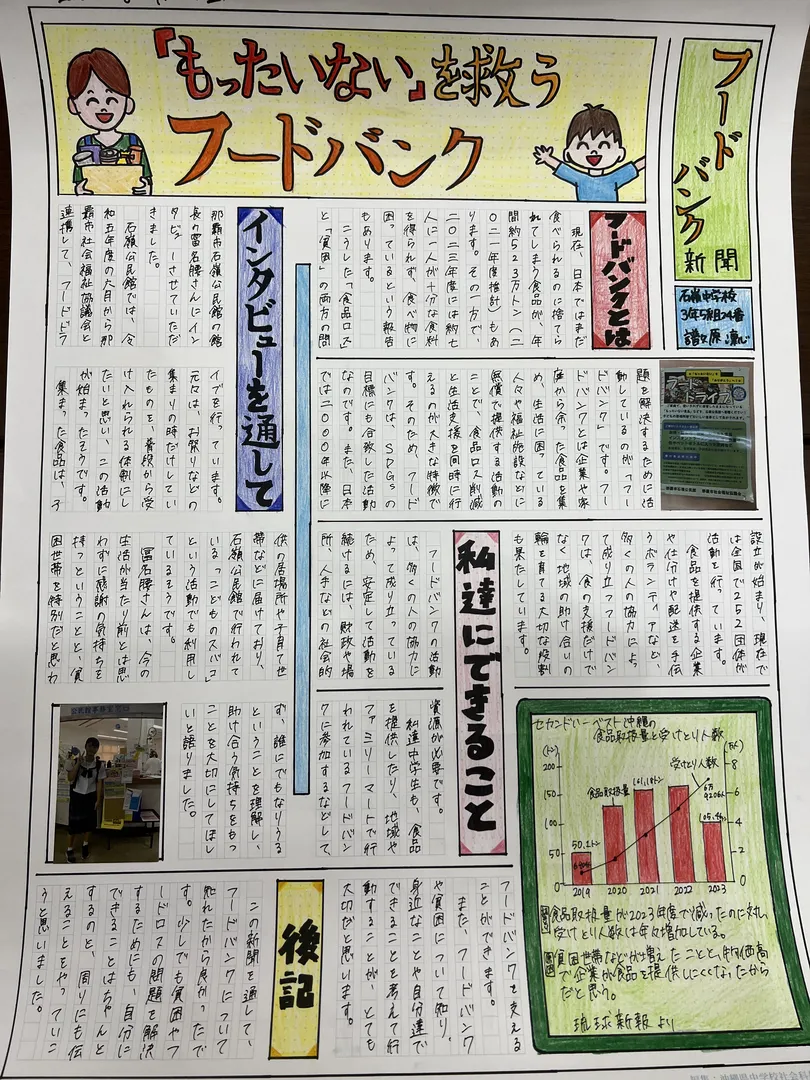 フードバンク
新聞
石嶺中学校
3年5組24番
「もったいない」を救う
フードバンク
フードバンクとは
現在、日本ではまだ
食べられるのに捨てら
れてしまう食品が、年
間約523万トン(二
〇二一年度推計)もあ
ります。その一方で、
二〇二三年度には約七
人に一人が十分な食料
を得られず、食べ物に
困っているという報告
もあります。
こうした「食品ロス」
と「貧困」の両方の問
題を解決するために活
動しているのが「フー
ドバンク」です。フー
ドバンクとは企業や家
庭から余った食品を集
め、生活に困っている
人々や福祉施設などに
無償で提供する活動の
ことで、食品ロス削減
と生活支援を同時に行
えるのが大きな特徴で
す。そのため、フード
バンクは、SDGsの
目標にも合致した活動
なのです。また、日本
では二〇〇〇年以降に
設立が始まり、現在で
は全国で252団体が
活動を行っています。
食品を提供する企業
や仕分けや配送を手伝
うボランティアなど、
多くの人の協力によっ
て成り立つフードバン
クは、食の支援だけで
なく地域の助け合いの
輪を育てる大切な役割
も果たしています。
フードドライブ
セカンドハーベスト沖縄の
食品取扱量と受けとり人数
(トン)
200
150
100
50
0
(万人)
8
6
4
2
0
食品取扱量
受けとり人数
50.2トン
161.18トン
6万
9206人
105.4トン
2019 2020 2021 2022 2023
食品取扱量が2023年度で減ったのに対し
受けとり人数は年々増加している。
貧困世帯などが増えたことと、物価高
で企業が食品を提供しにくくなったから
だと思う。
琉球新報より
私達にできること
フードバンクの活動
は、多くの人の協力に
よって成り立っている
ため、安定して活動を
続けるには、財政や場
所、人手などの社会的
資源が必要です。
私達中学生も、食品
を提供したり、地域や
ファミリーマートで行
われているフードバン
クに参加するなどして、
フードバンクを支える
ことができます。
また、フードバンク
や貧困について知り、
身近なことや自分達で
できることを考えて行
動することが、とても
大切だと思います。
インタビューを通して
那覇市石嶺公民館の館
長の冨名腰さんにイン
タビューさせていただ
きました。
石嶺公民館では、令
和五年度の六月から那
覇市社会福祉協議会と
連携して、フードドラ
イブを行っています。
元々は、お祭りなどの
集まりの時だけしてい
たものを、普段から受
け入れられる体制にし
たいと思い、この活動
が始まったそうです。
集まった食品は、子
供の居場所や子育て世
帯などに届けており、
石嶺公民館で行われて
いる「こどものスパコ」
という活動でも利用し
ているそうです。
冨名腰さんは、今の
生活が当たり前とは思
わずに感謝の気持ちを
持つということと、貧
困世帯を特別だと思わ
ず、誰にでもなりうる
ということを理解し、
助け合う気持ちをもつ
ことを大切にしてほし
いと語りました。
後記
この新聞を通して、
フードバンクについて
知れたから良かったで
す。少しでも貧困やフ
ードロスの問題を解決
するためにも、自分に
できることはちゃんと
するのと、周りにも伝
えることをやっていこ
うと思いました。